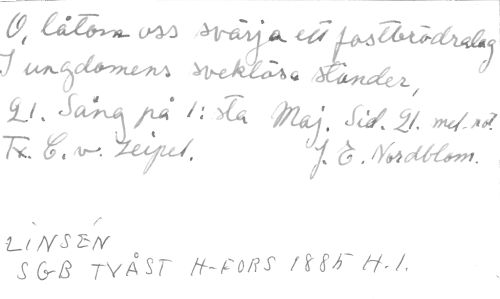 O, låtom oss svärja ett fostbrödralag
I ungdomens sveklösa stunder,
21. Sång på 1:sta Maj. Sid. 21. mel. not.
Tx. C. v. Zeipel. J. E. Nordblom.
LINSÉN
SGB TVÅST H-FORS 1885 H.1.